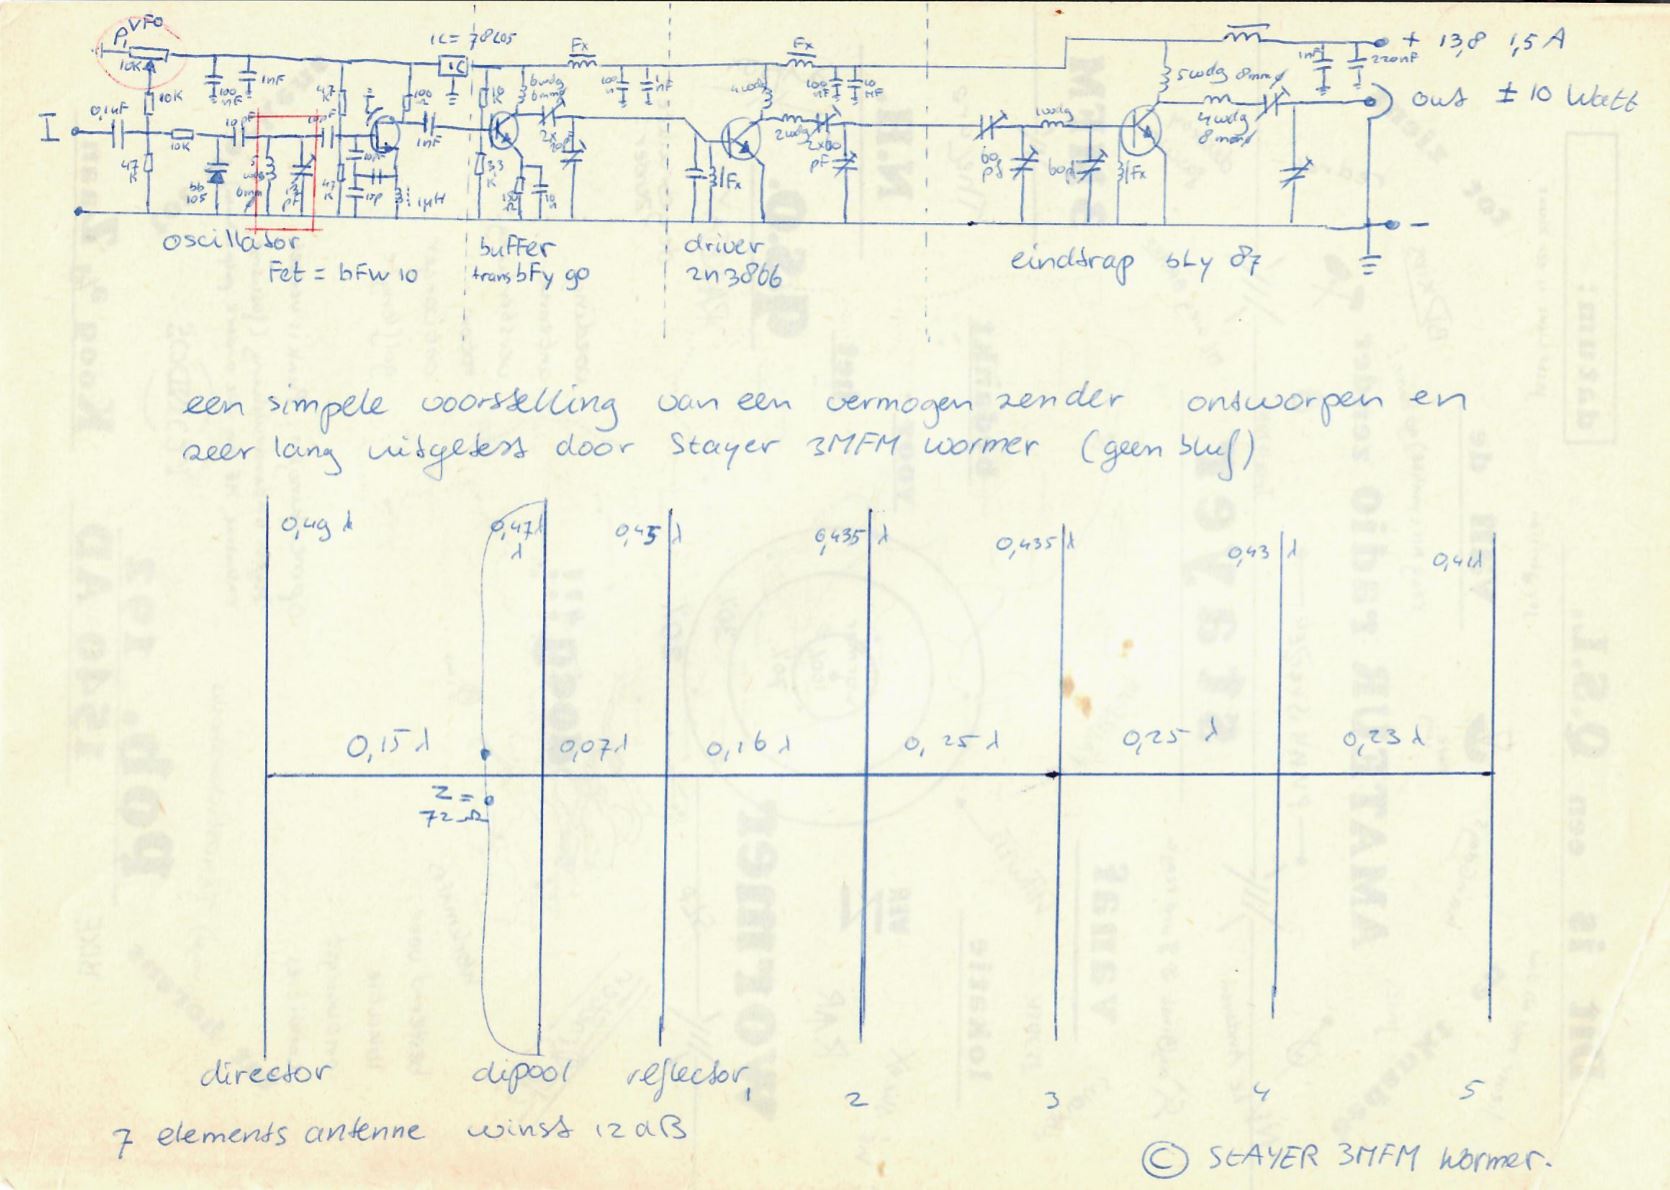 VFO
P1
10K
10K
0,1uF
I
47
K
10K
bb
105
100
nF
1nF
10 pF
5
wdg
6mm
pF
10pF
47
K
47
K
10p
100
Ω
1nF
1µH
IC = 78L05
IC
10
K
3,3
K
6wdg
6mm
2x
Fx
100
nF
1
nF
150
Ω
10
n
Fx
4wdg
2wdg
2x60
pF
100
nF
10
nF
Fx
60
pF
1wdg
60pF
Fx
5wdg 8mmø
4wdg
8mmø
1nF
220nF
+ 13,8 1,5 A
out ± 10 Watt
-
oscillator
Fet = bFw 10
buffer
trans bFy 90
driver
2n3866
eindtrap bLy 87
een simpele voorstelling van een vermogen zender ontworpen en
zeer lang uitgetest door Stayer 3MFM wormer (geen bluf)
0,49 λ
0,47λ
λ
0,45 λ
0,435 λ
0,435 λ
0,43 λ
0,41λ
0,15 λ
0,07λ
0,16 λ
0,25 λ
0,25 λ
0,23 λ
Z =
72 Ω
director
dipool
reflector 1
2
3
4
5
7 elements antenne winst 12 dB
© STAYER 3MFM Wormer.